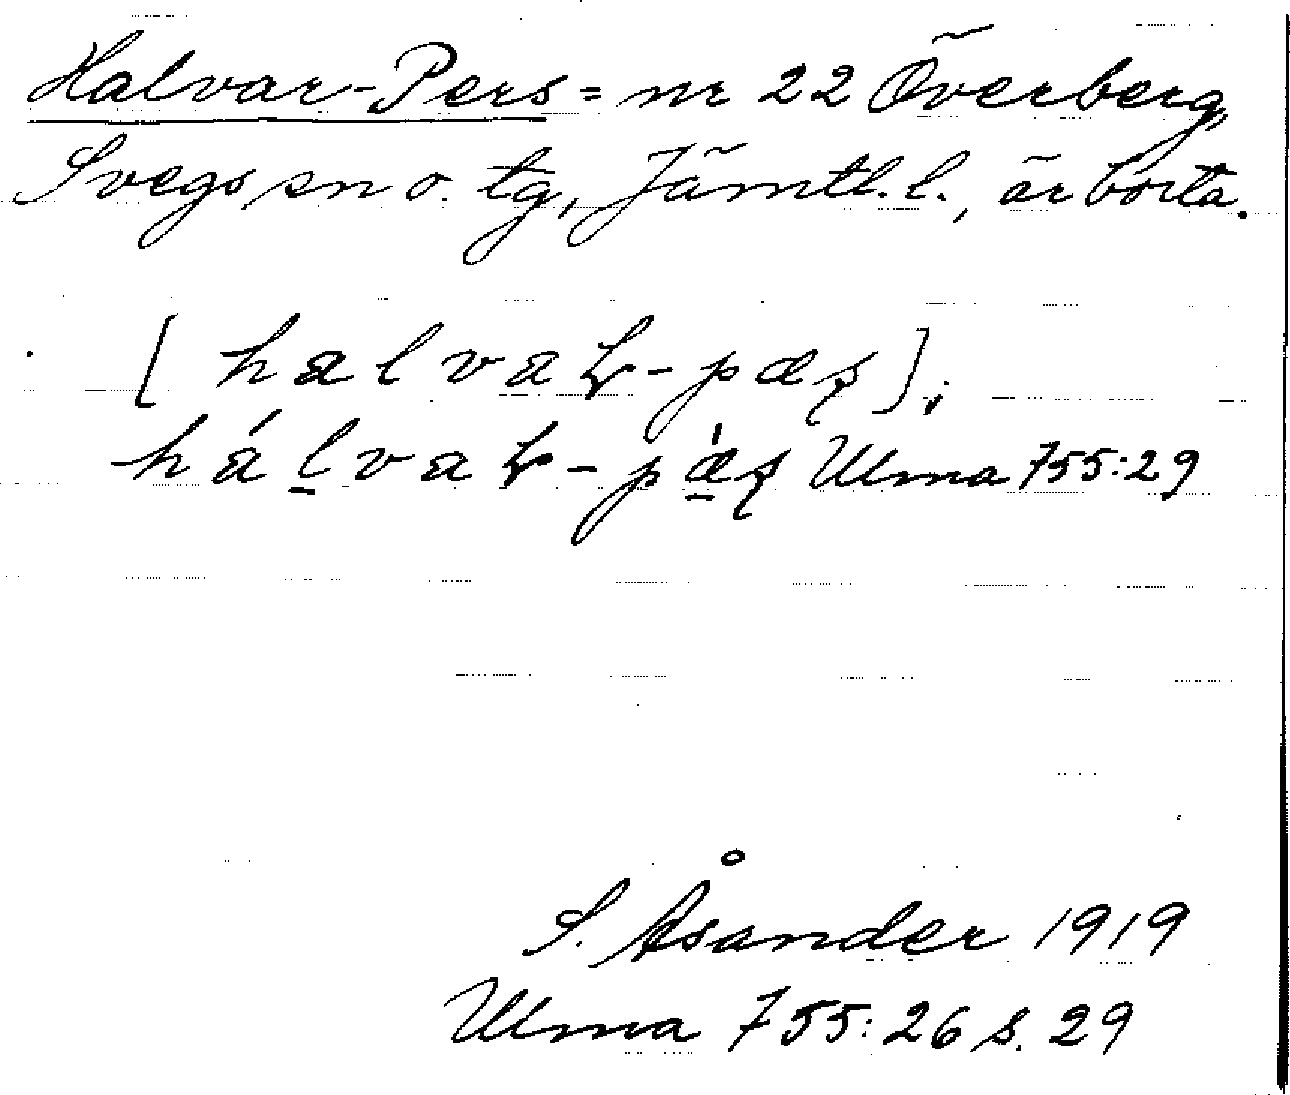 Halvar-Pers = nr 22 Överberg,
Svegs sn o. tg, Jämtl. l., är borta.
[halvaɽ-pæʂ];
hál̲vaɽ-pæ̲̀ʂ Ulma 755:29
S. Åsander 1919
Ulma 755:26 s. 29